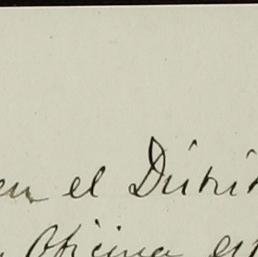 en el Distrit
Oficina est